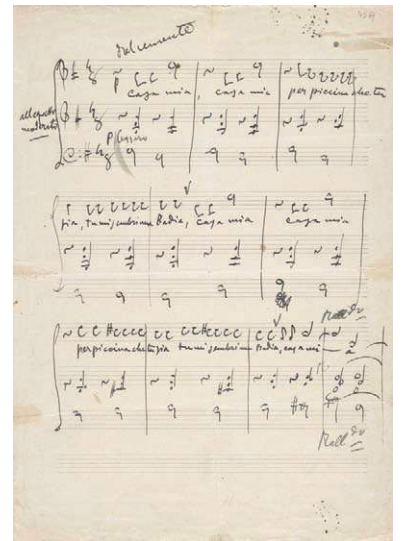 dolcemente
p
casa mia, casa mia per piccina che tu
allegretto
moderato
sia, tu mi sembri una Badia, casa mia casa mia
Rall do
per piccina che tu sia tu mi sembri una Badia, casa mi - a
Rall do